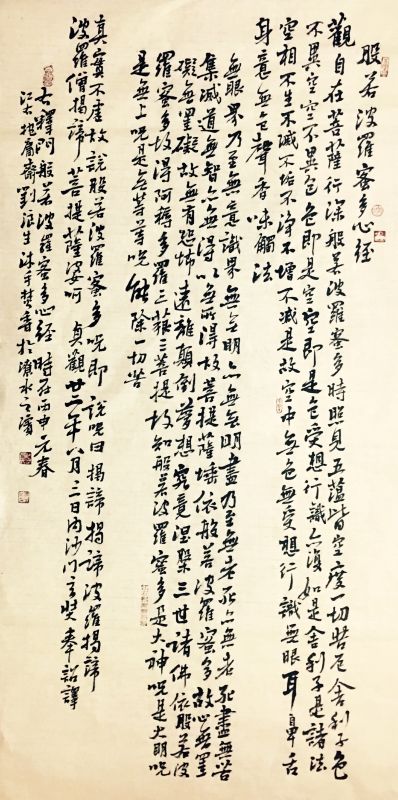 般若波羅蜜多心経
觀自在菩薩行深般若波羅蜜多時照見五蘊皆空度一切苦厄舍利子色
不異空空不異色色即是空空即是色受想行識亦復如是舍利子是諸法
空相不生不滅不垢不淨不增不減是故空中無色無受想行識無眼耳鼻舌
身意無色聲香味觸法
無眼界乃至無意識界無無明亦無無明盡乃至無老死亦無老死盡無苦
集滅道無智亦無得以無所得故菩提薩埵依般若波羅蜜多故心無罣
礙無罣礙故無有恐怖遠離顛倒夢想究竟涅槃三世諸佛依般若波
羅蜜多故得阿耨多羅三藐三菩提故知般若波羅蜜多是大神呪是大明呪
是無上呪是無等等呪能除一切苦
真實不虛故說般若波羅蜜多呪即說呪曰揭諦揭諦波羅揭諦
波羅僧揭諦菩提薩婆訶 貞觀廿二年八月三日內沙門玄奘奉詔譯
右釋門般若波羅蜜多心経時在丙申元春
齋劉浪生沐手焚香於水之濱